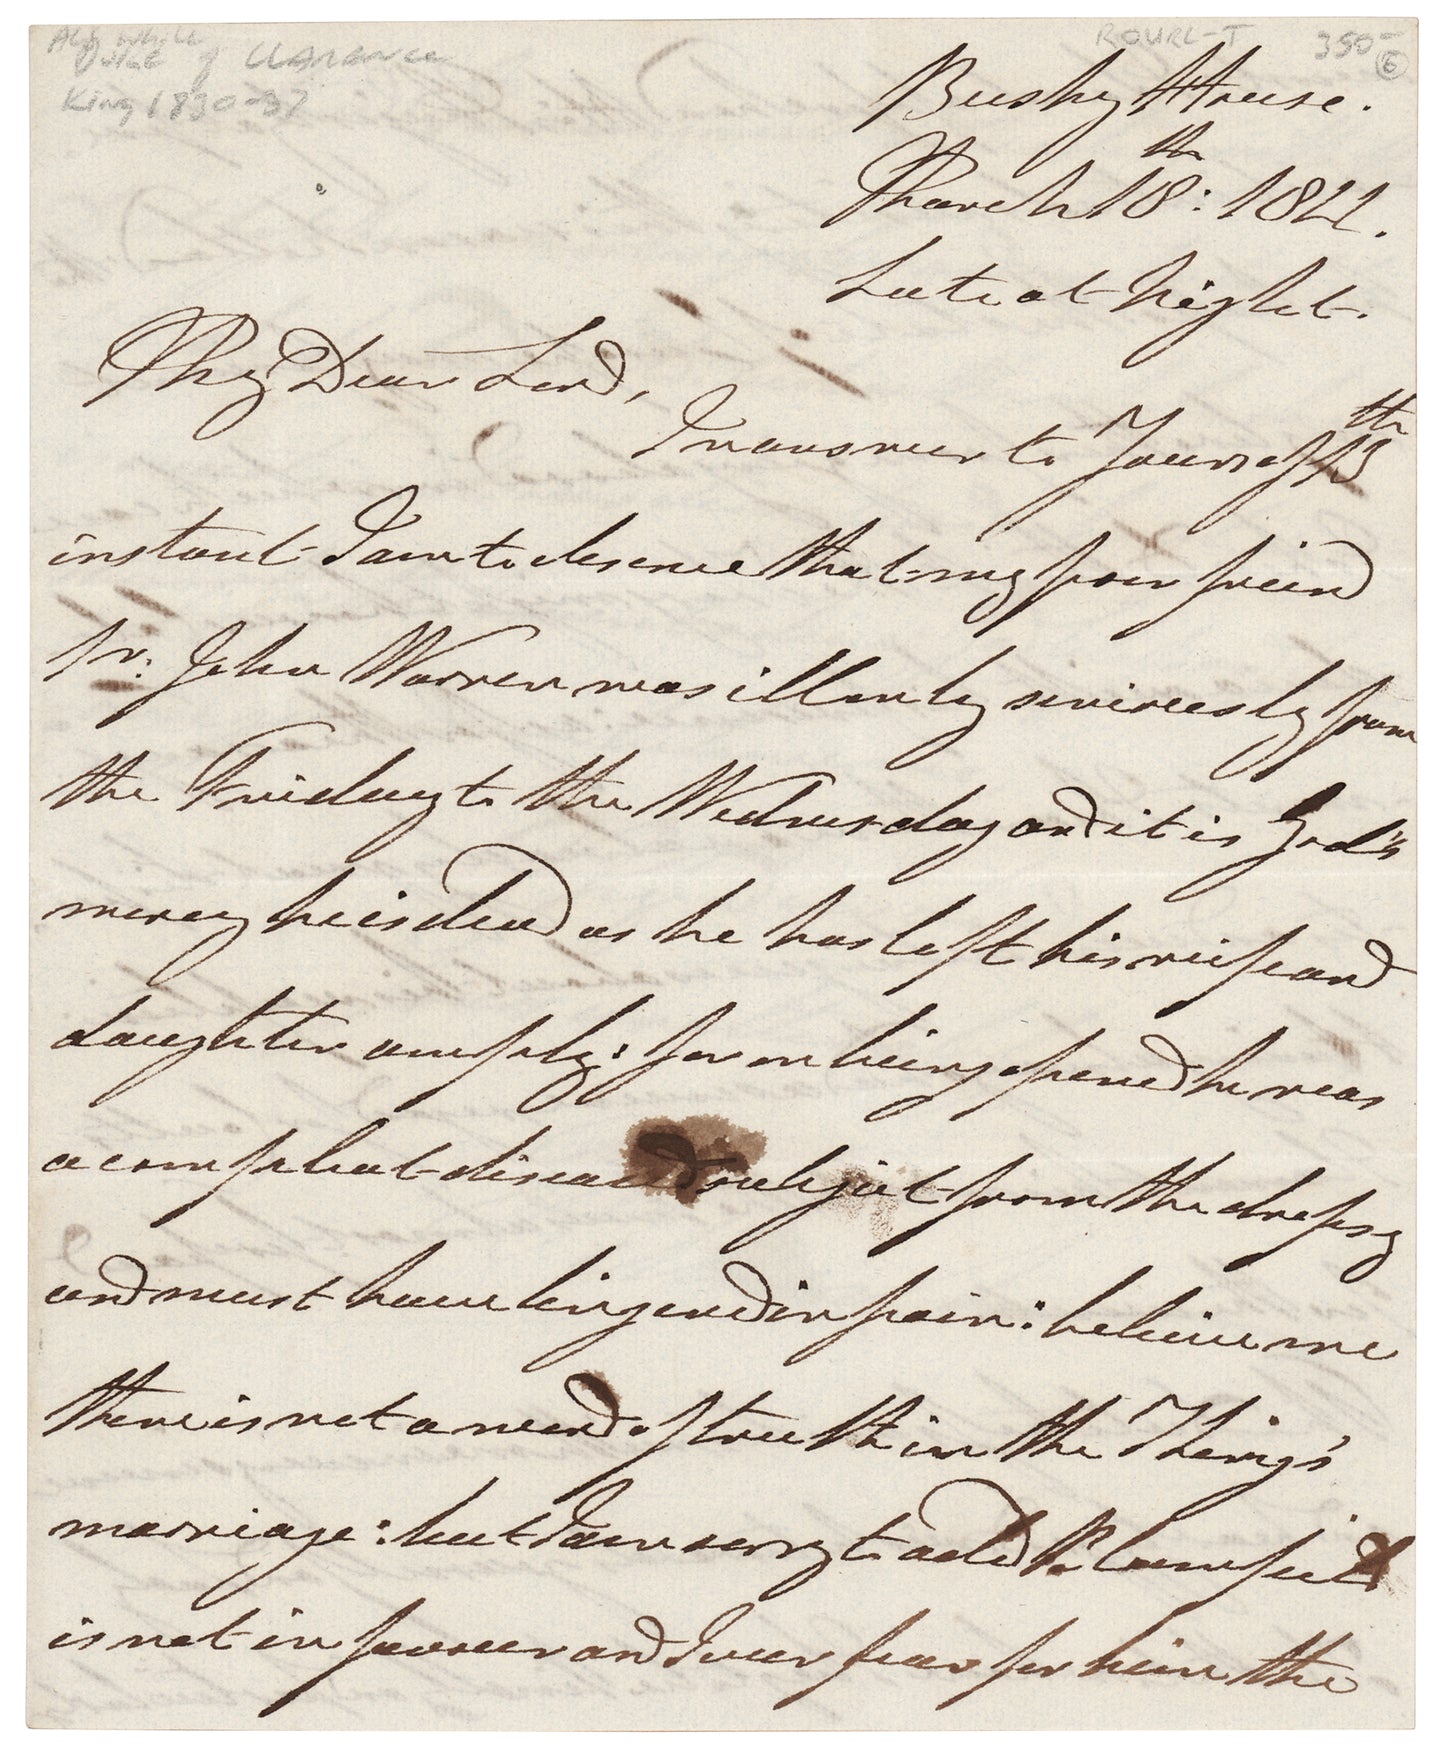 ALS while
Duke of CLARENCE
King 1830-37
ROYAL-I 350- 6
Bushy House.
March 18th: 1822.
Late at Night.
My Dear Lord,
In answer to Yours of 13th
instant I am to observe that my poor friend
Sr: John Warren was ill only seriously from
the Friday to the Wednesday and it is God's
mercy he is dead as he has left his wife and
daughter amply: for on being opened he was
a compleat diseased subject from the dropsy
and must have lingered in pain: believe me
there is not a word of truth in the King's
marriage: but I am sorry to add Bloomfield
is not in favour and I even fear for him the